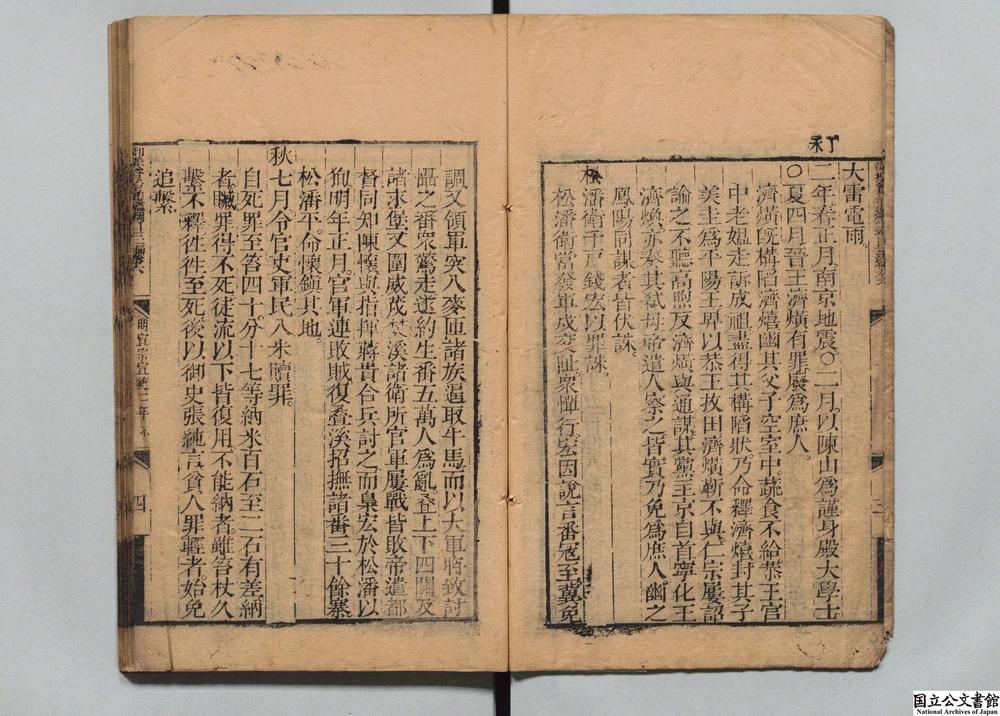 丁未
大雷電雨
二年春正月南京地震〇二月以陳山爲謹身殿大學士
〇夏四月晉王濟熿有罪廢爲庶人。
濟熿既構陷濟熺幽其父子空室中。蔬食不給恭王宮
中老媼走訴成祖盡得其構陷狀乃命釋濟熺封其子
美圭爲平陽王畀以恭王故田濟熿靳不與。仁宗屢詔
諭之不聽高煦反濟熿與通謀其黨王京自首寧化王
濟煥亦奏其弒母帝遣人察之皆實乃免爲庶人。幽之
鳳陽同謀者皆伏誅。
松潘衛千戶錢宏以罪誅。
松潘衛當發軍戍交阯衆憚行宏因說言番寇至冀免
調又領軍突入麥匝諸族逼取牛馬。而以大軍將致討
懾之番衆驚走遂約生番五萬人爲亂。登上下四關及
諸永堡又圍威茂疊溪諸衛所官軍屢戰皆敗帝遣都
督同知陳懷與指揮蔣貴合兵討之而梟宏於松潘以
狥明年正月。官軍連敗賊復疊溪招撫諸番三十餘寨
松潘平。命懷鎮其地。
秋七月令官吏軍民入米贖罪。
自死罪至笞四十。分十七等納米百石至二石有差。納
者贓罪得不死徒流以下皆復用。不能納者。雖笞杖久
繫不釋往往至死後以御史張純言。貧人罪輕者。始免
追繫。
明宣宗宣德二年
四
三
国立公文書館
National Archives of Japan